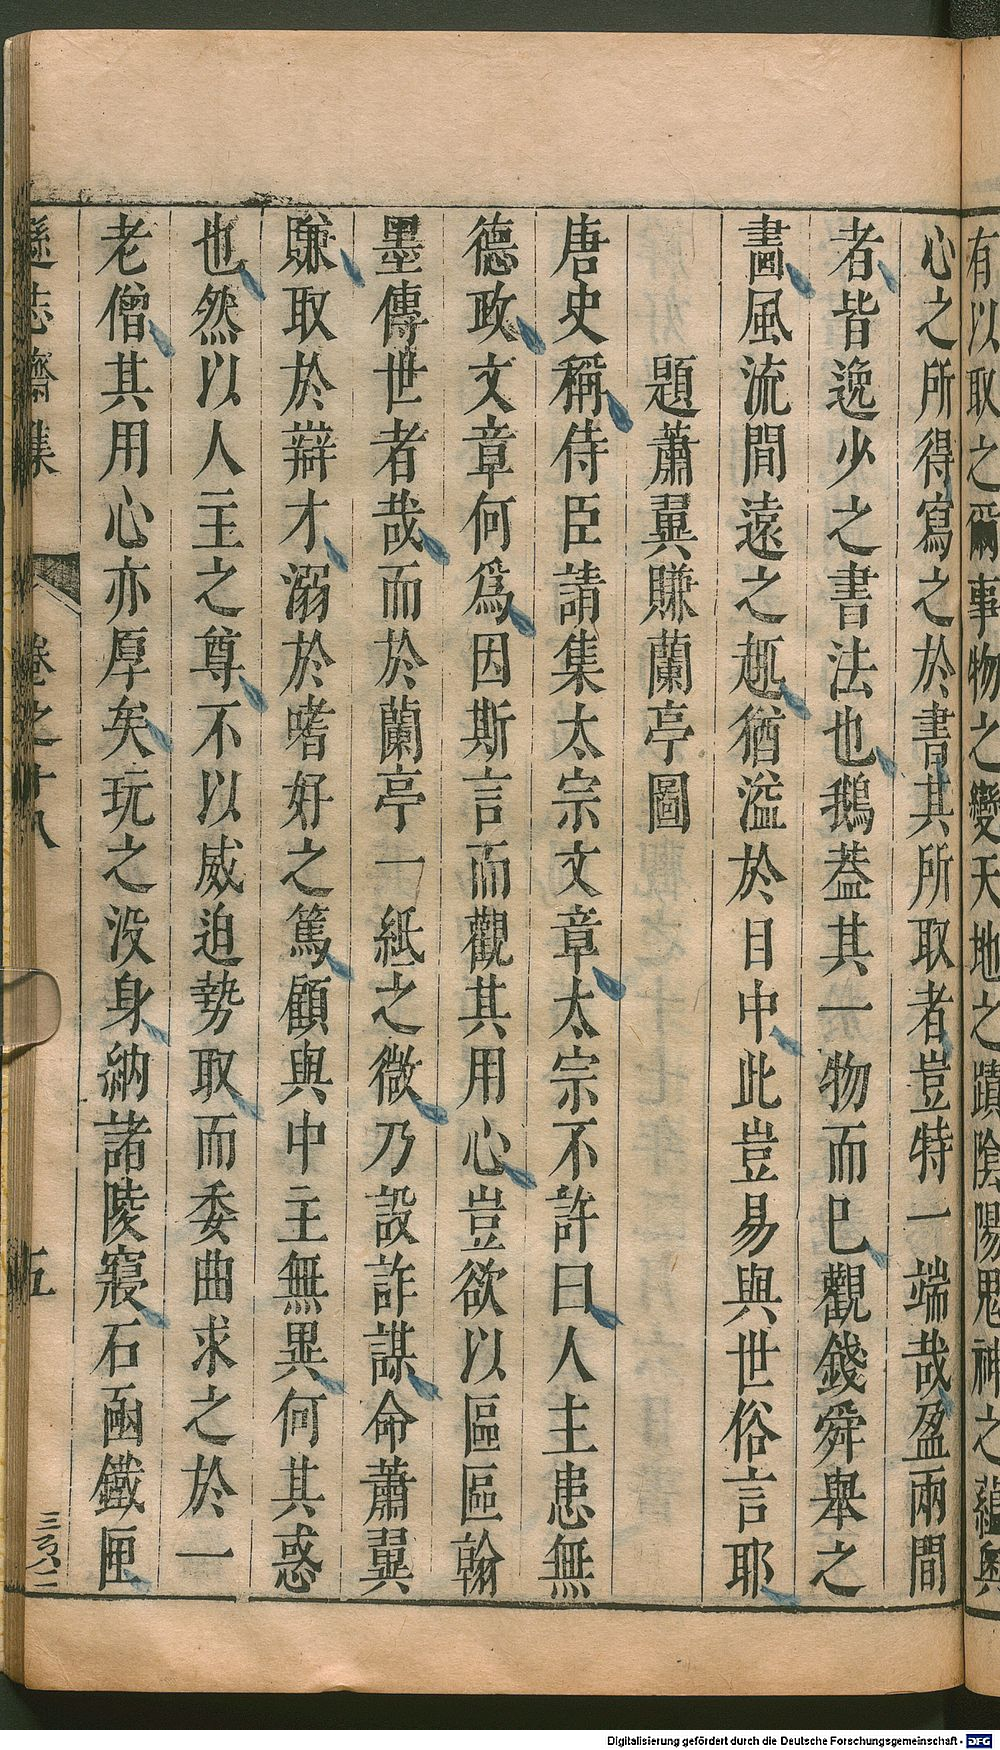 有以取之爾事物之變天地之蹟陰陽鬼神之蘊奥
心之所得寫之於書其所取者豈特一端哉盈兩間
者皆逸少之書法也鵝葢其一物而已觀錢舜舉之
畵風流間遠之趣猶溢於目中此豈易與世俗言耶
題蕭翼賺蘭亭圖
唐史稱侍臣請集太宗文章太宗不許曰人主患無
德政文章何爲因斯言而觀其用心豈欲以區區翰
墨傳世者哉而於蘭亭一紙之微乃設詐謀命蕭翼
賺取於辯才溺於嗜好之篤顧與中主無異何其惑
也然以人主之尊不以威迫勢取而委曲求之於一
老僧其用心亦厚矣玩之沒身納諸陵寢石函鐵匣
遜志齋集 卷之十八 五
Digitalisierung gefördert durch die Deutsche Forschungsgemeinschaft - DFG